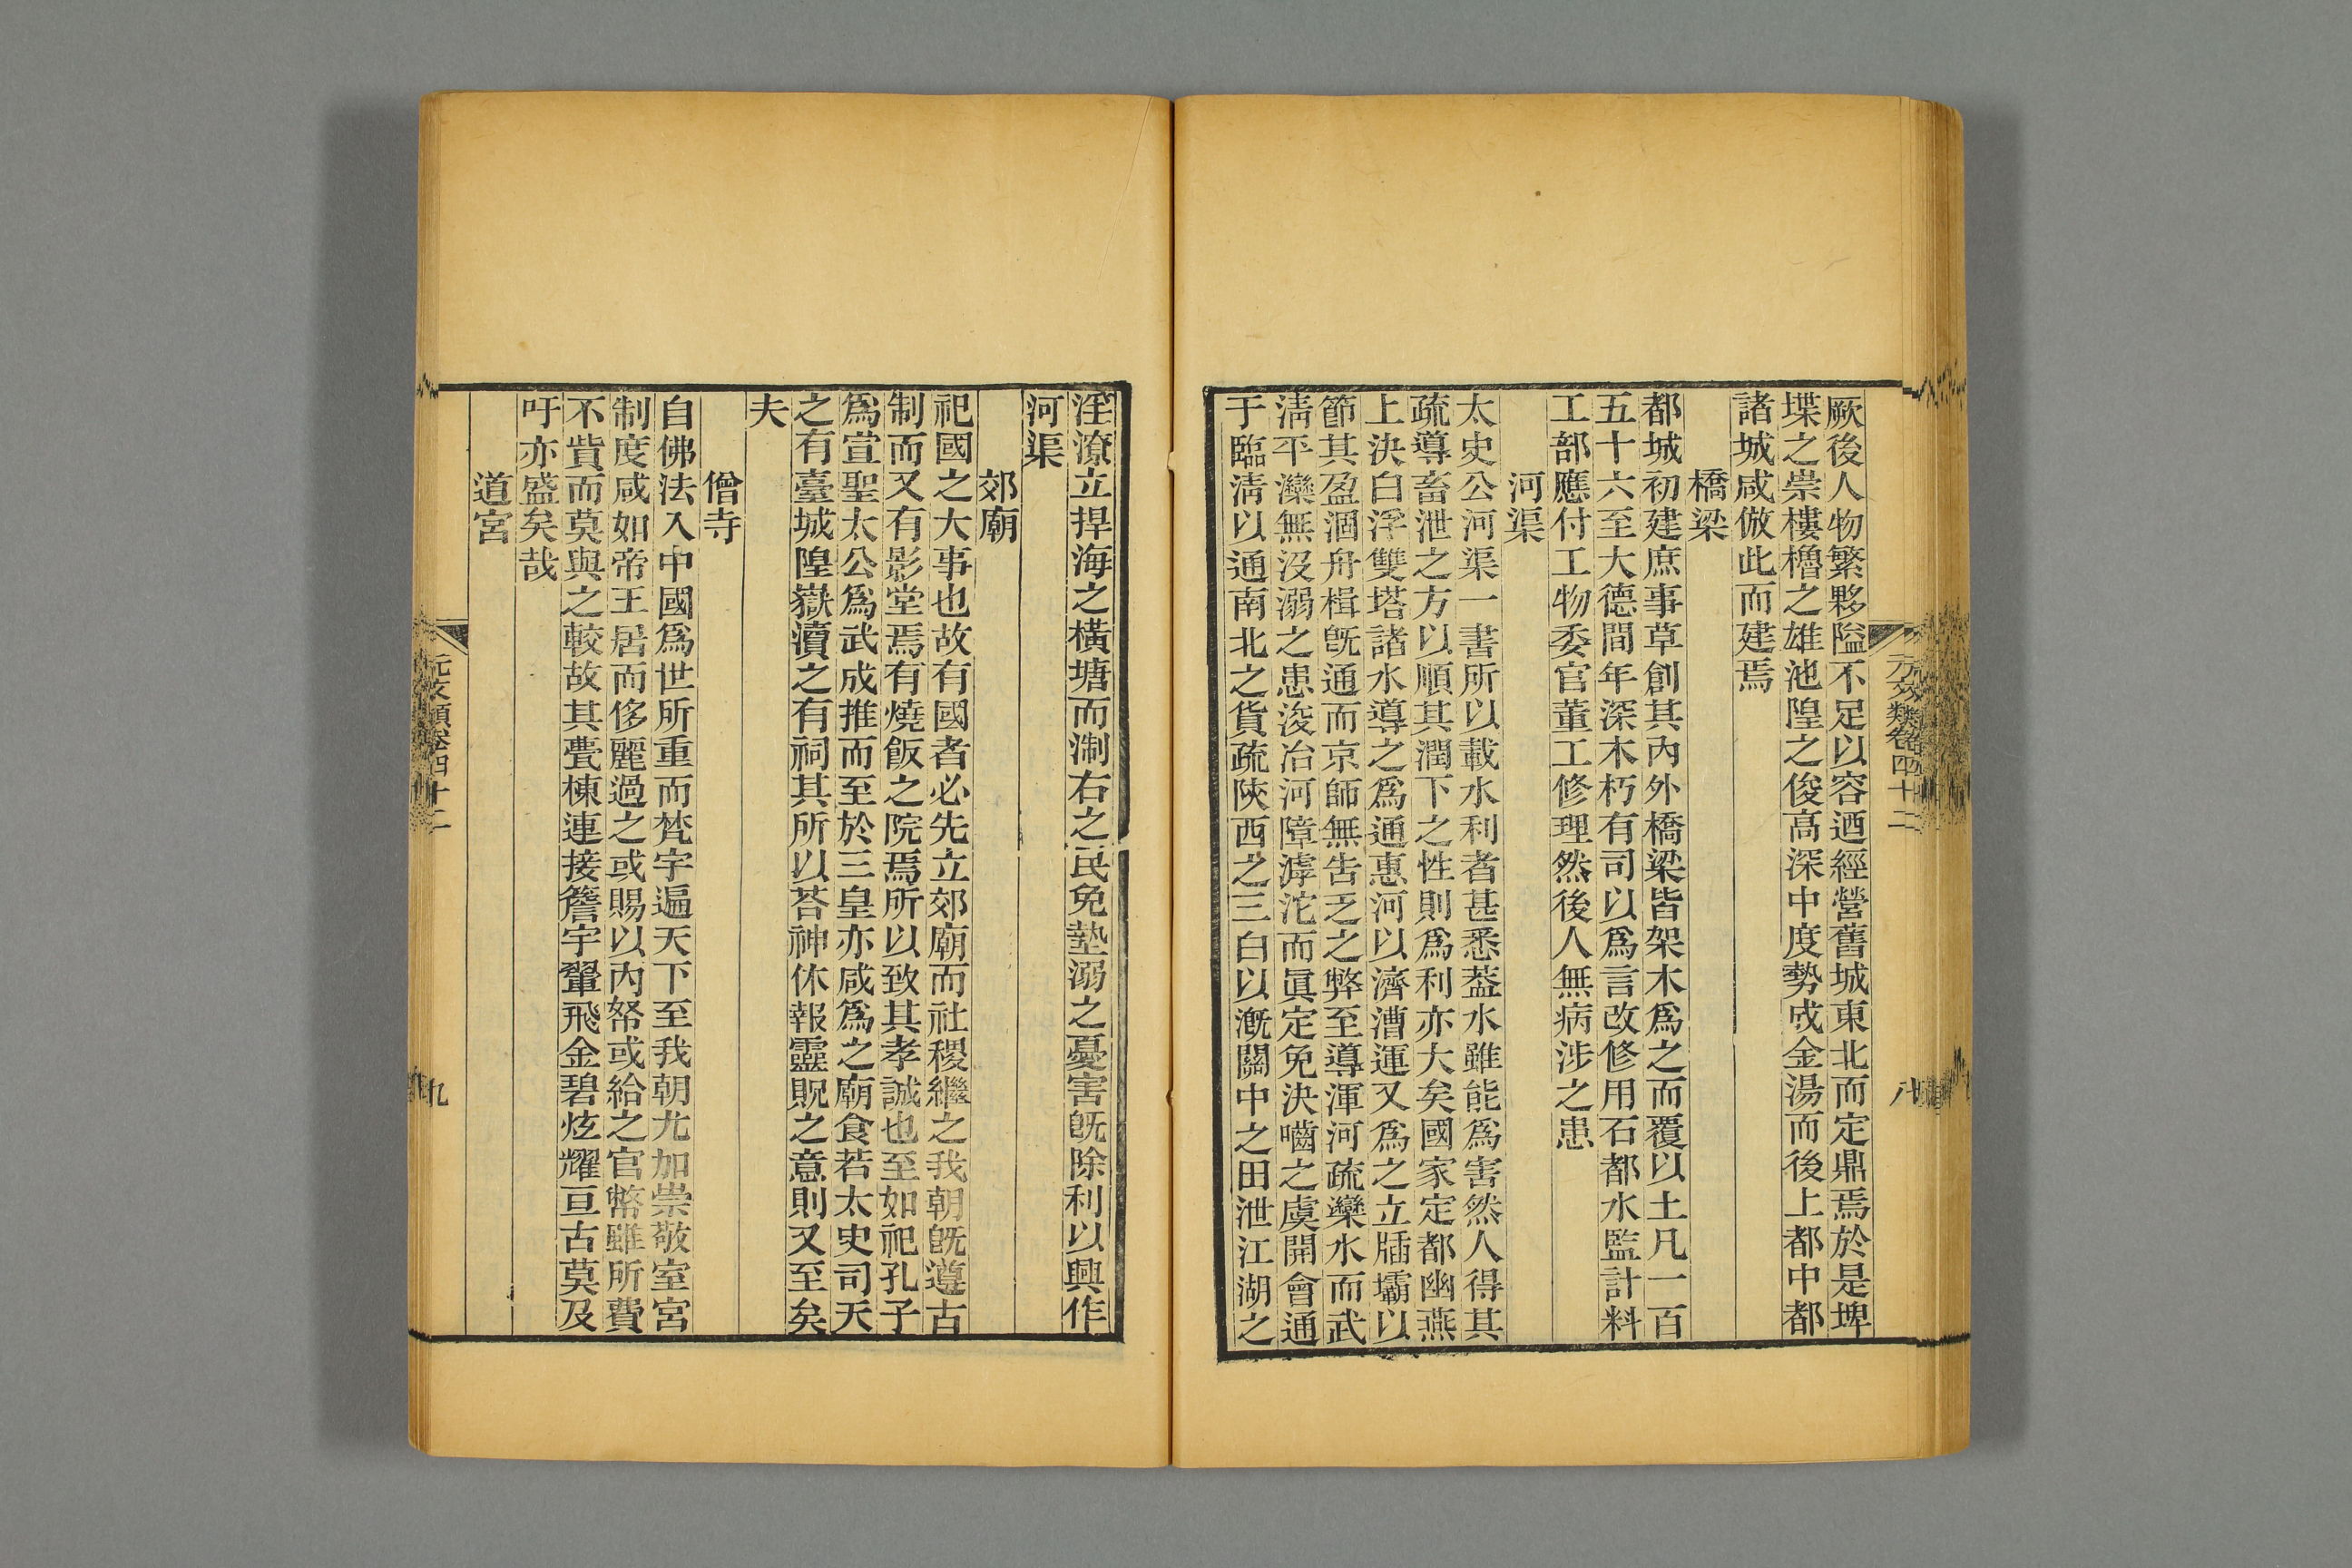 元文類卷四十二
八
厥後人物繁夥隘不足以容迺經營舊城東北而定鼎焉於是埤
堞之崇樓櫓之雄池隍之俊高深中度勢成金湯而後上都中都
諸城咸倣此而建焉
橋梁
都城初建庶事草創其內外橋梁皆架木爲之而覆以土凡一百
五十六至大德間年深木朽有司以爲言改修用石都水監計料
工部應付工物委官董工修理然後人無病涉之患
河渠
太史公河渠一書所以載水利者甚悉葢水雖能爲害然人得其
疏導畜泄之方以順其潤下之性則爲利亦大矣國家定都幽燕
上決白浮雙塔諸水導之爲通惠河以濟漕運又爲之立牐壩以
節其盈涸舟楫旣通而京師無告乏之弊至導渾河疏灤水而武
淸平灤無沒溺之患浚冶河障滹沱而眞定免決嚙之虞開會通
于臨淸以通南北之貨疏陜西之三白以漑關中之田泄江湖之
淫潦立捍海之橫塘而淛右之民免墊溺之憂害旣除利以興作
河渠
郊廟
祀國之大事也故有國者必先立郊廟而社稷繼之我朝旣遵古
制而又有影堂焉有燒飯之院焉所以致其孝誠也至如祀孔子
爲宣聖太公爲武成推而至於三皇亦咸爲之廟食若太史司天
之有臺城隍嶽瀆之有祠其所以荅神休報靈貺之意則又至矣
夫
僧寺
自佛法入中國爲世所重而梵宇遍天下至我朝尤加崇敬室宮
制度咸如帝王居而侈麗過之或賜以內帑或給之官幣雖所費
不貲而莫與之較故其甍棟連接簷宇翬飛金碧炫耀亘古莫及
吁亦盛矣哉
道宮
元文類卷四十二
九